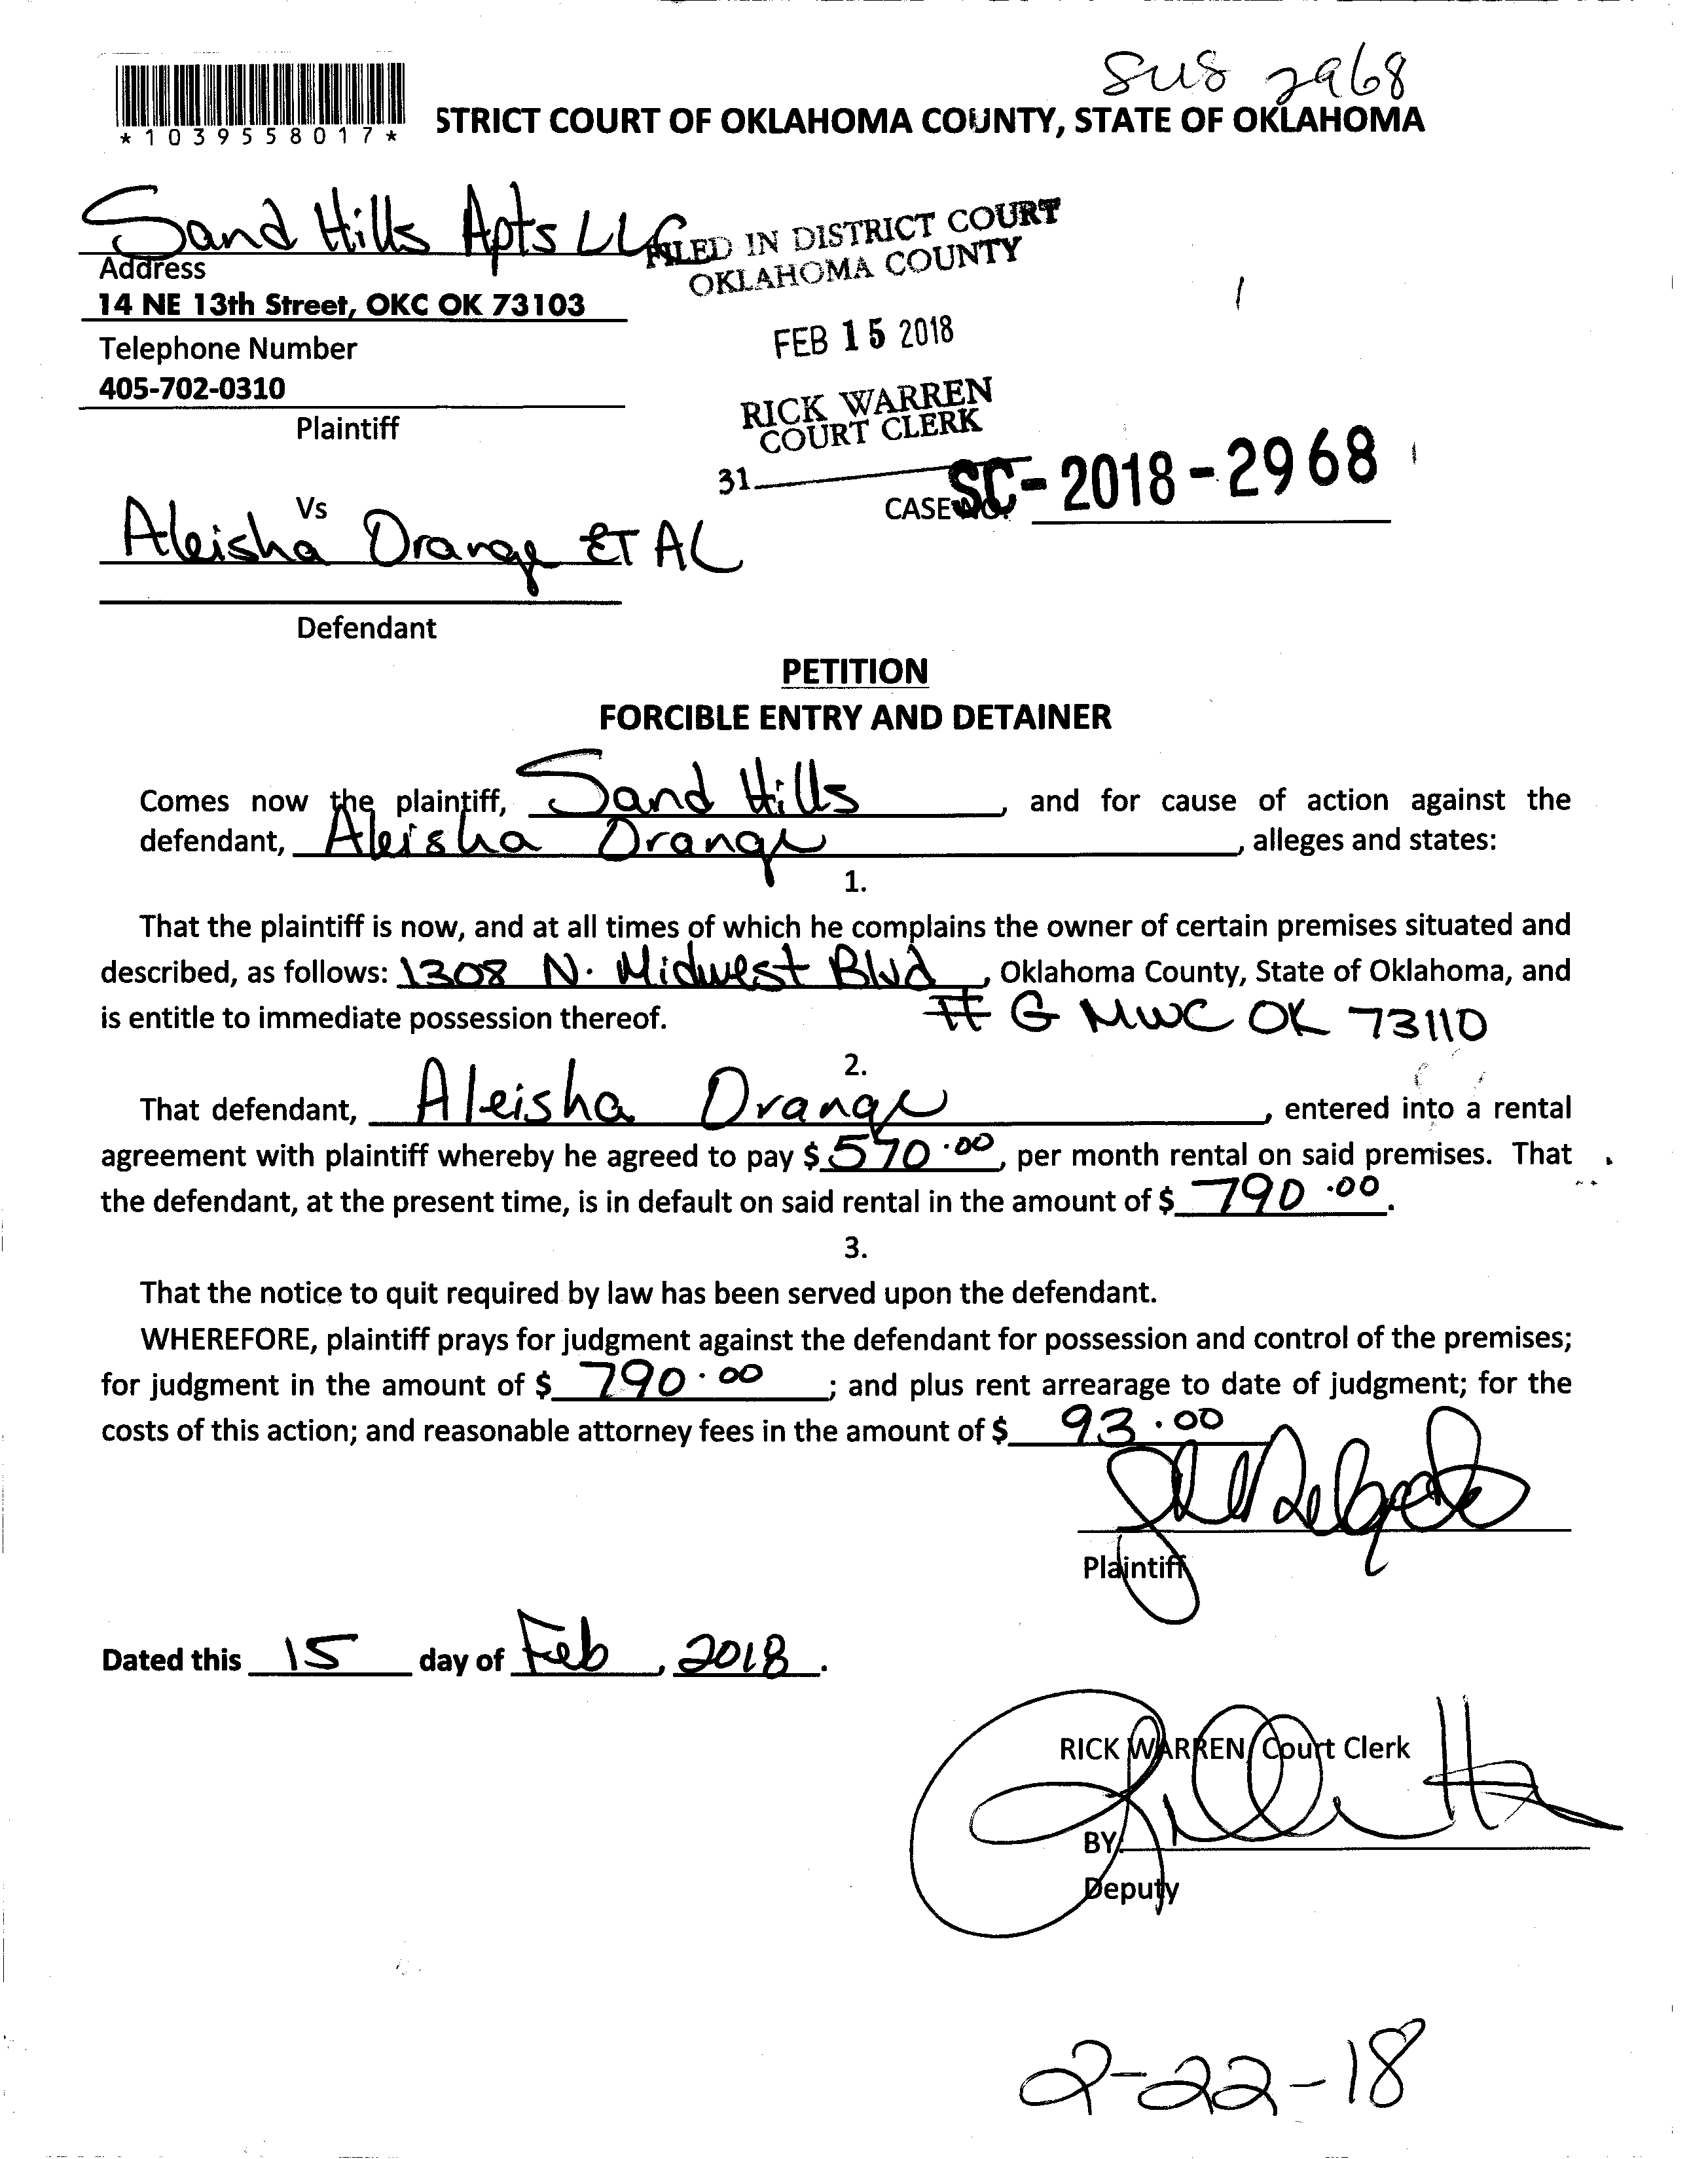 SUS 2968
*1039558017*
STRICT COURT OF OKLAHOMA COUNTY, STATE OF OKLAHOMA
Sand Hills Apts LLC
FILED IN DISTRICT COURT
OKLAHOMA COUNTY
Address
14 NE 13th Street, OKC OK 73103
FEB 15 2018
Telephone Number
405-702-0310
RICK WARREN
COURT CLERK
Plaintiff
31
CASE NO. SC-2018-2968
Vs
Aleisha Orange ET AL
Defendant
PETITION
FORCIBLE ENTRY AND DETAINER
Comes now the plaintiff, Sand Hills, and for cause of action against the
defendant, Aleisha Orange, alleges and states:
1.
That the plaintiff is now, and at all times of which he complains the owner of certain premises situated and
described, as follows: 1308 N. Midwest Blvd, Oklahoma County, State of Oklahoma, and
is entitle to immediate possession thereof. # G MWC OK 73110
2.
That defendant, Aleisha Orange, entered into a rental
agreement with plaintiff whereby he agreed to pay $ 570.00, per month rental on said premises. That
the defendant, at the present time, is in default on said rental in the amount of $ 790.00.
3.
That the notice to quit required by law has been served upon the defendant.
WHEREFORE, plaintiff prays for judgment against the defendant for possession and control of the premises;
for judgment in the amount of $ 790.00; and plus rent arrearage to date of judgment; for the
costs of this action; and reasonable attorney fees in the amount of $ 93.00
Plaintiff
Dated this 15 day of Feb, 2018.
RICK WARREN, Court Clerk
BY
Deputy
2-22-18